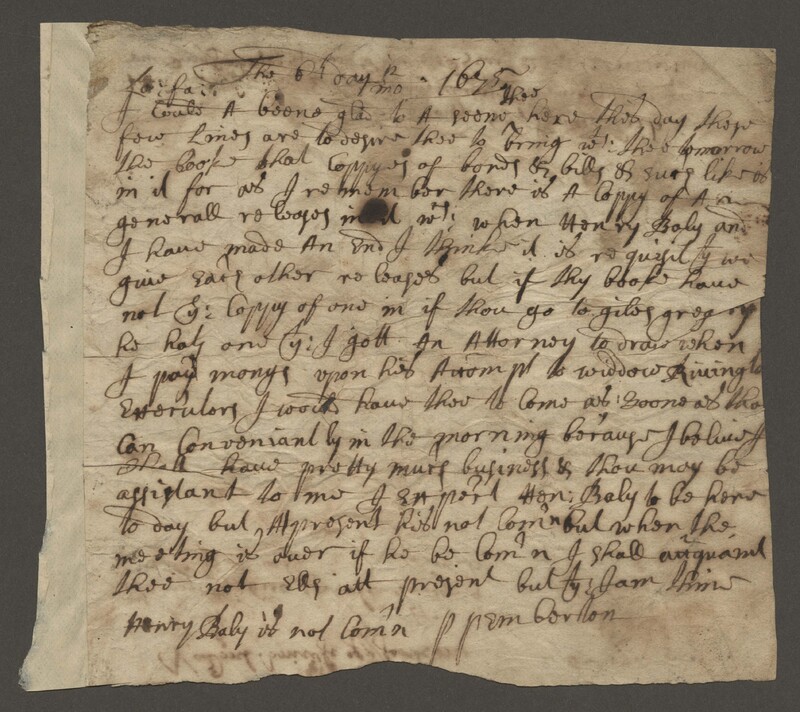 The 6th day 12 mo: 1675
fa: fa:
I Could A beene glad to A seene thee here this day these
few Lines are to desire thee to bring wth: thee tomorrow
the booke that Coppyes of bonds & bills & such like is
in it for as I remember there is A Coppy of A
generall releases in it wch: when Henry Baly and
I have made An End I thinke it is requisit yt we
give Each other releases but if thy booke have
not ye: Coppy of one in if thou go to giles gregory
he hath one yt: I gott An Attorney to draw when
I payd monys upon his Accompt to widdow Rivingto
Executors I would have thee to Come as: zoone as tho
Can Conveniantly in the morning because I belive I
shall have pretty much business & thou may be
assistant to me I Expect Hen: Baly to be here
to day but Att present his not Com'n but when the
meeting is over if he be Com'n I shall acquaint
thee not Els att present but yt: I am thine
Henry Baly is not Com'n P Pemberton